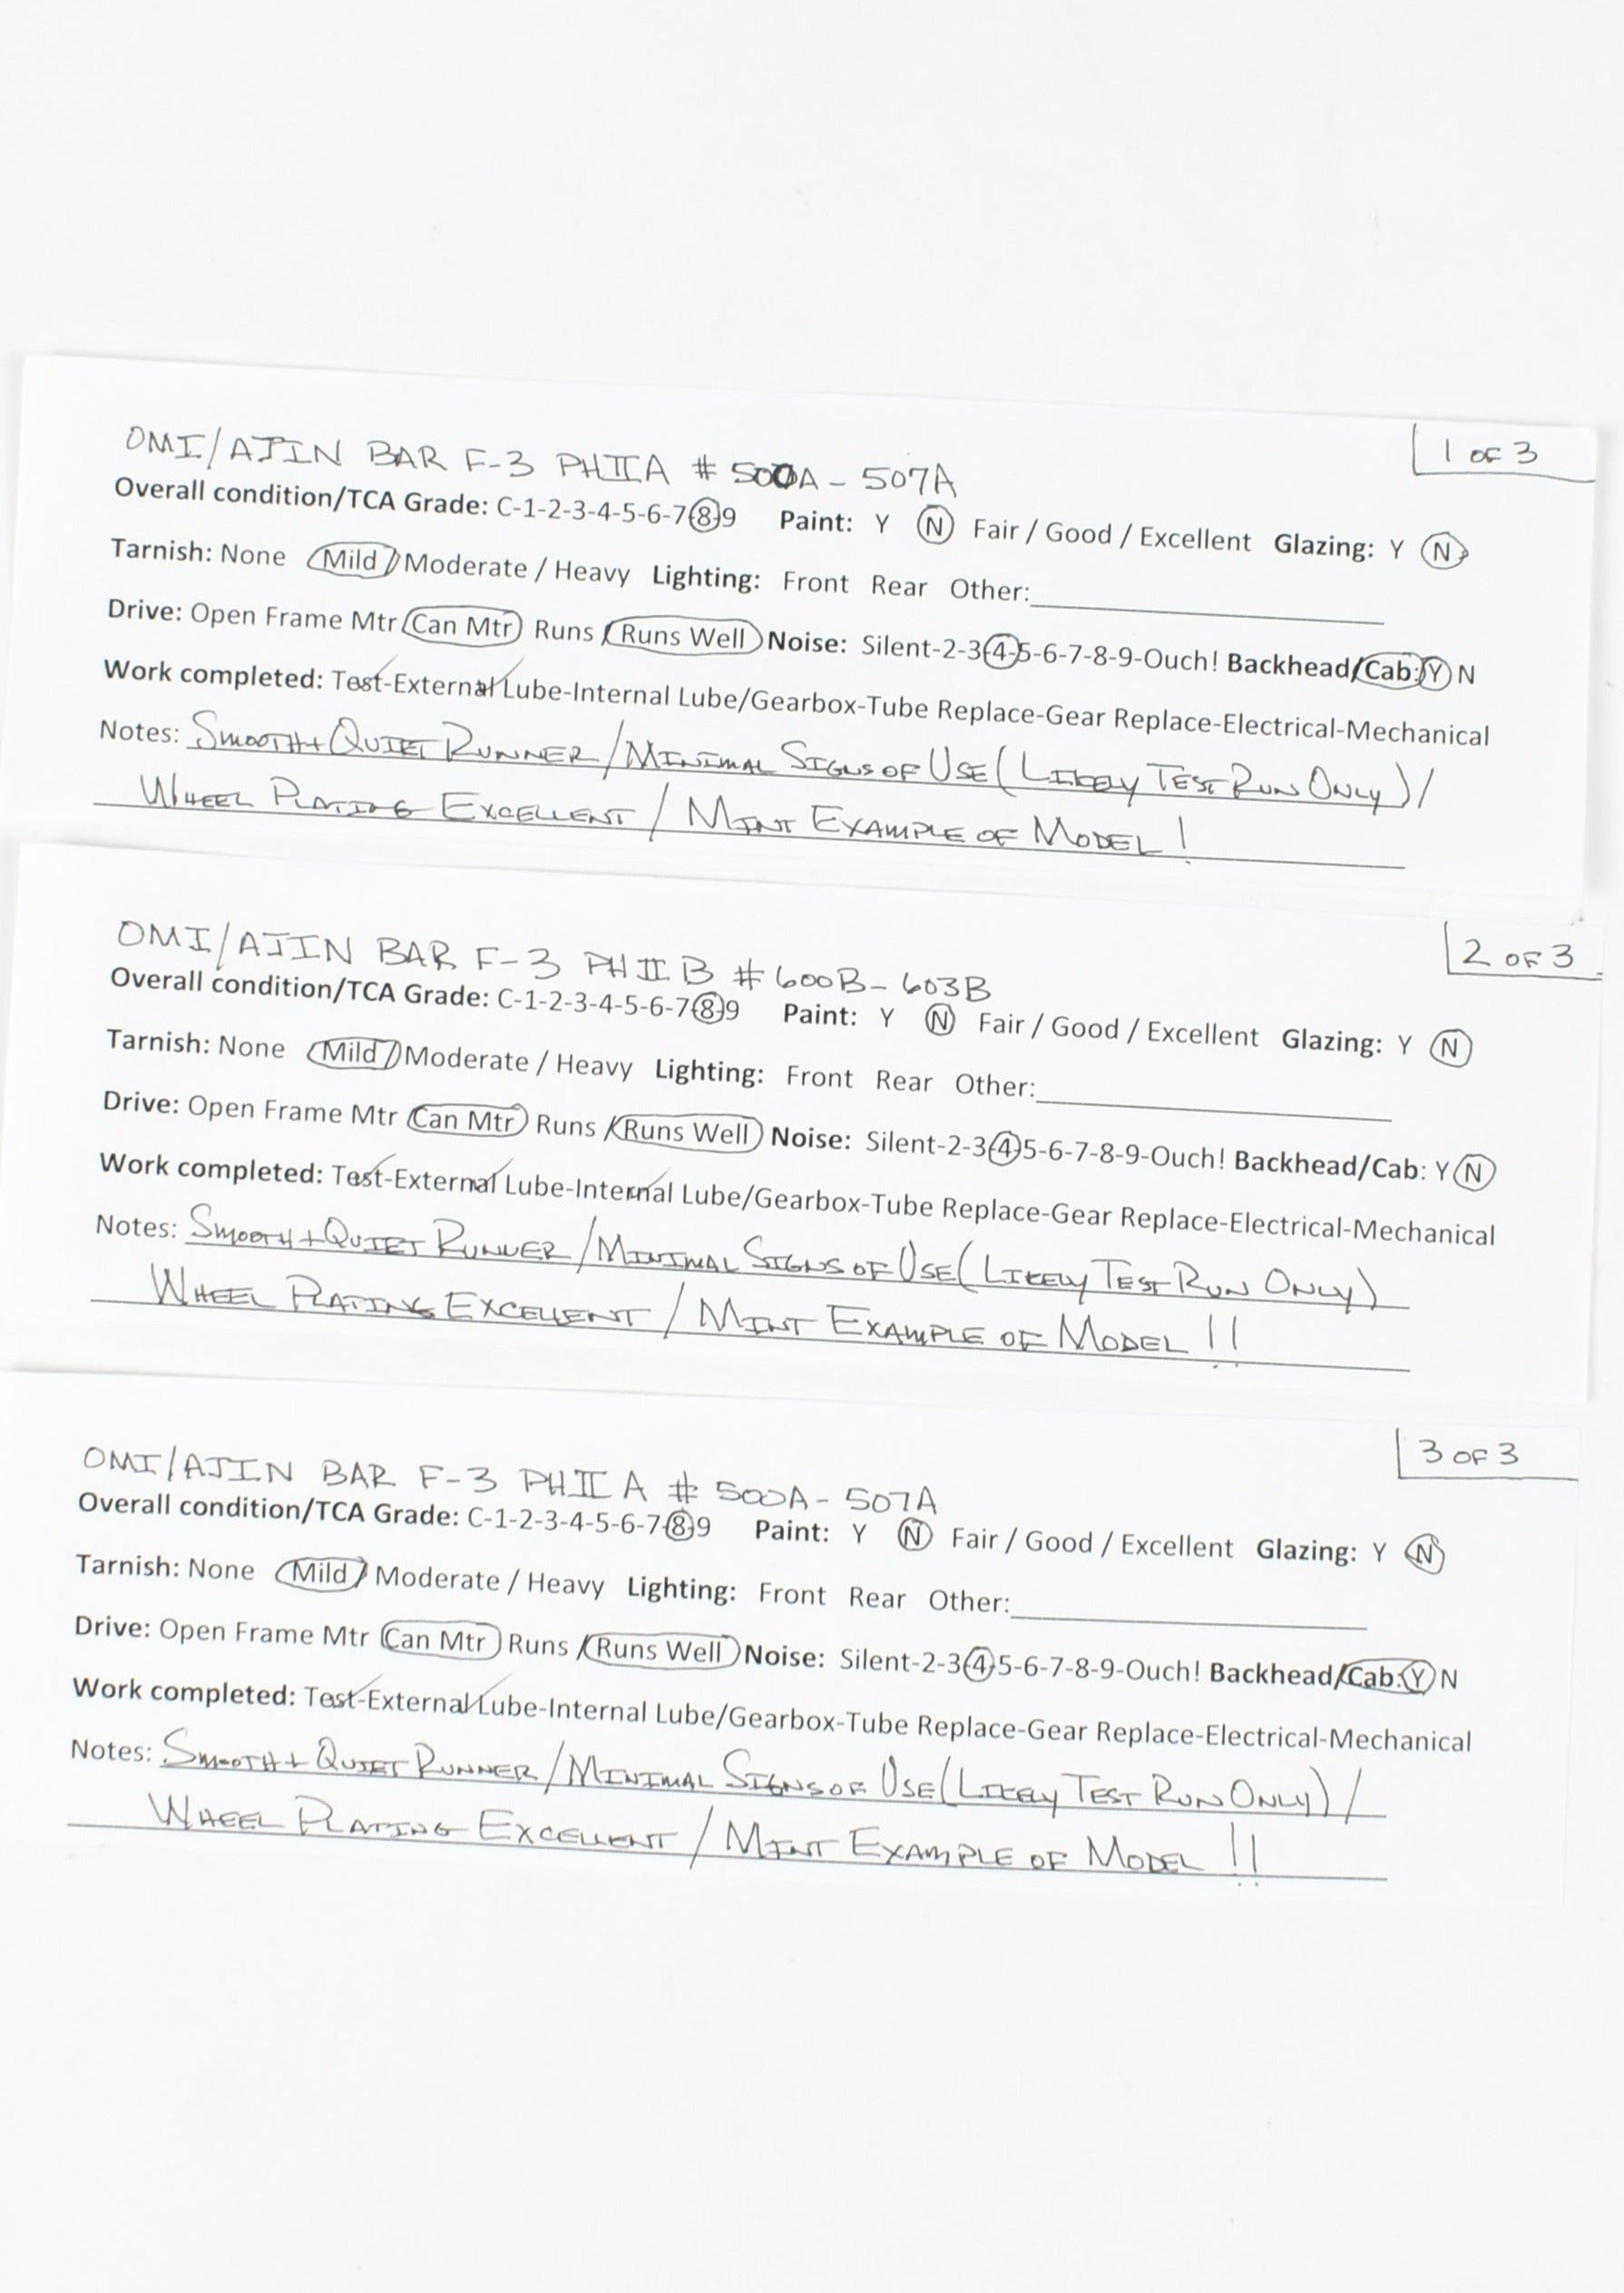 OMI/AJIN BAR F-3 PHII A # 500A - 507A
1 OF 3
Overall condition/TCA Grade: C-1-2-3-4-5-6-7-8-9 Paint: Y N Fair / Good / Excellent Glazing: Y N
Tarnish: None / Mild / Moderate / Heavy Lighting: Front Rear Other:
Drive: Open Frame Mtr / Can Mtr Runs / Runs Well Noise: Silent-2-3-4-5-6-7-8-9-Ouch! Backhead/Cab: Y N
Work completed: Test-External Lube-Internal Lube/Gearbox-Tube Replace-Gear Replace-Electrical-Mechanical
Notes: SMOOTH + QUIET RUNNER / MINIMAL SIGNS OF USE (LIKELY TEST RUN ONLY) /
WHEEL PLATING EXCELLENT / MINT EXAMPLE OF MODEL !
OMI/AJIN BAR F-3 PH II B # 600B - 603B
2 OF 3
Overall condition/TCA Grade: C-1-2-3-4-5-6-7-8-9 Paint: Y N Fair / Good / Excellent Glazing: Y N
Tarnish: None / Mild / Moderate / Heavy Lighting: Front Rear Other:
Drive: Open Frame Mtr / Can Mtr Runs / Runs Well Noise: Silent-2-3-4-5-6-7-8-9-Ouch! Backhead/Cab: Y N
Work completed: Test-External Lube-Internal Lube/Gearbox-Tube Replace-Gear Replace-Electrical-Mechanical
Notes: SMOOTH + QUIET RUNNER / MINIMAL SIGNS OF USE (LIKELY TEST RUN ONLY)
WHEEL PLATING EXCELLENT / MINT EXAMPLE OF MODEL !!
OMI/AJIN BAR F-3 PH II A # 500A - 507A
3 OF 3
Overall condition/TCA Grade: C-1-2-3-4-5-6-7-8-9 Paint: Y N Fair / Good / Excellent Glazing: Y N
Tarnish: None / Mild / Moderate / Heavy Lighting: Front Rear Other:
Drive: Open Frame Mtr / Can Mtr Runs / Runs Well Noise: Silent-2-3-4-5-6-7-8-9-Ouch! Backhead/Cab: Y N
Work completed: Test-External Lube-Internal Lube/Gearbox-Tube Replace-Gear Replace-Electrical-Mechanical
Notes: SMOOTH + QUIET RUNNER / MINIMAL SIGNS OF USE (LIKELY TEST RUN ONLY) /
WHEEL PLATING EXCELLENT / MINT EXAMPLE OF MODEL !!